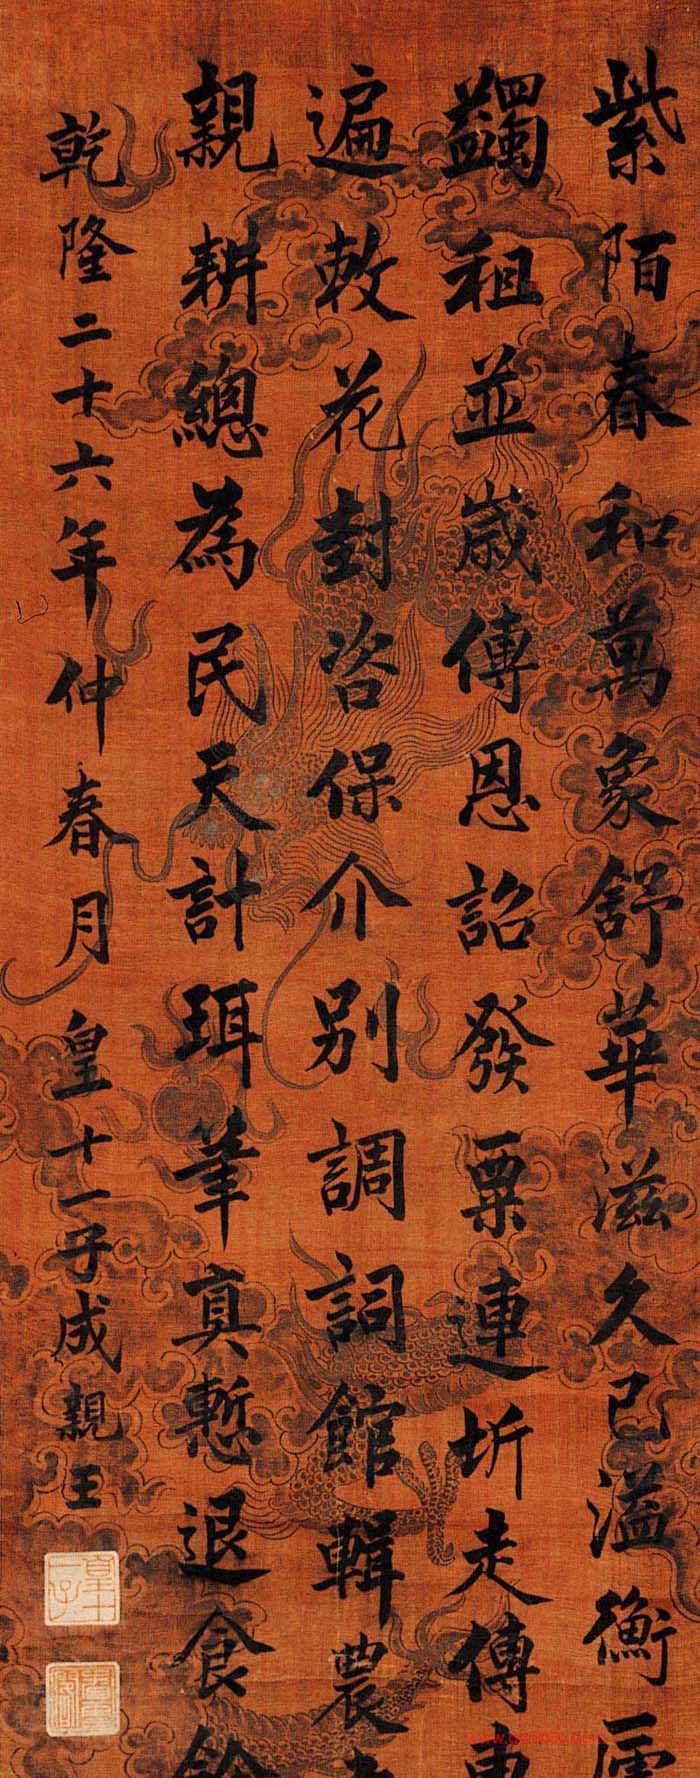 紫陌春和萬象舒華滋久已溢衡
蠲租並歲傳恩詔發粟連圻走傳
遍敕花封咨保介別調詞館輯農
親耕總為民天計珥筆真慙退食
乾隆二十六年仲春月皇十一子成親王
皇十一子